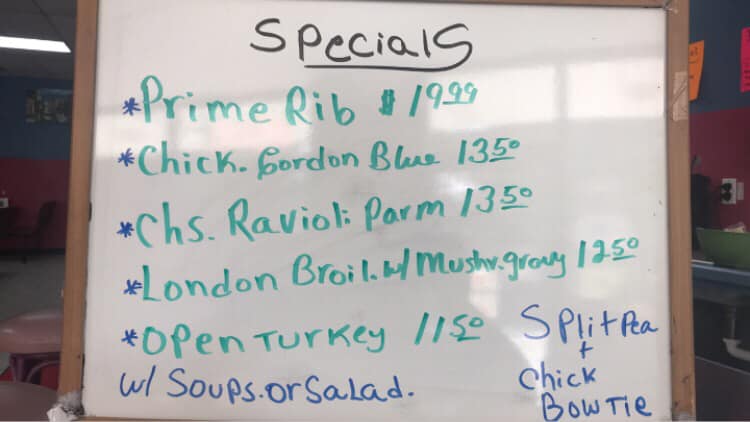 Specials
*Prime Rib $19.99
*Chick. Gordon Blue 13.50
*Chs. Ravioli Parm 13.50
*London Broil. w/ Mushr. gravy 12.50
*Open Turkey 11.50
w/ Soups. or Salad.
Split Pea
+
Chick
Bow Tie